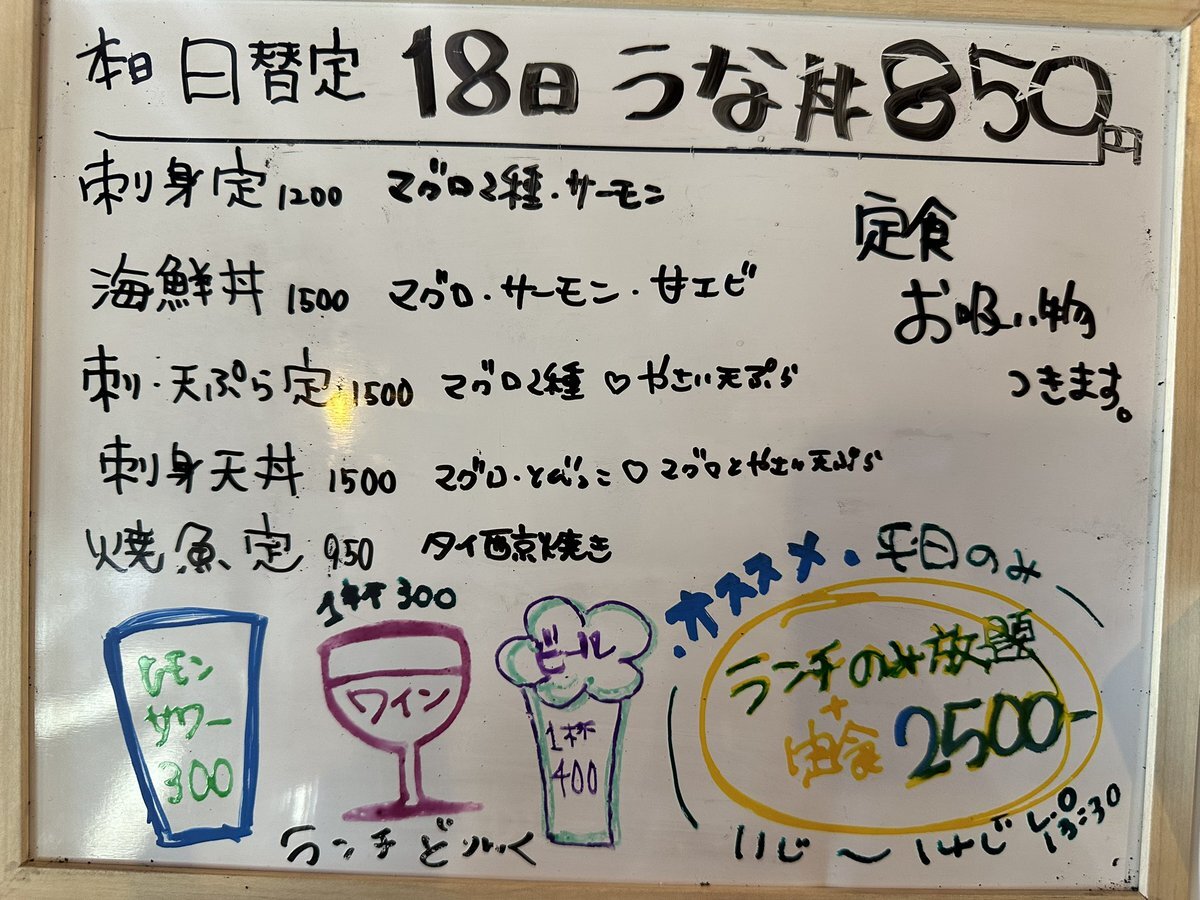 本日 日替定 18日 うな丼 850円
刺身定 1200 マグロ2種・サーモン
海鮮丼 1500 マグロ・サーモン・甘エビ
刺・天ぷら定 1500 マグロ2種 ♡ やさい天ぷら
刺身天丼 1500 マグロ・とびっこ ♡ マグロとやさい天ぷら
焼魚定 950 タイ西京焼き
定食
お吸い物
つきます。
レモン
サワー
300
1杯 300
ワイン
ビール
1杯
400
ランチどりんく
・オススメ・平日のみ
ランチのみ放題
+
定食 2500-
11じ～14じ L.O 13:30